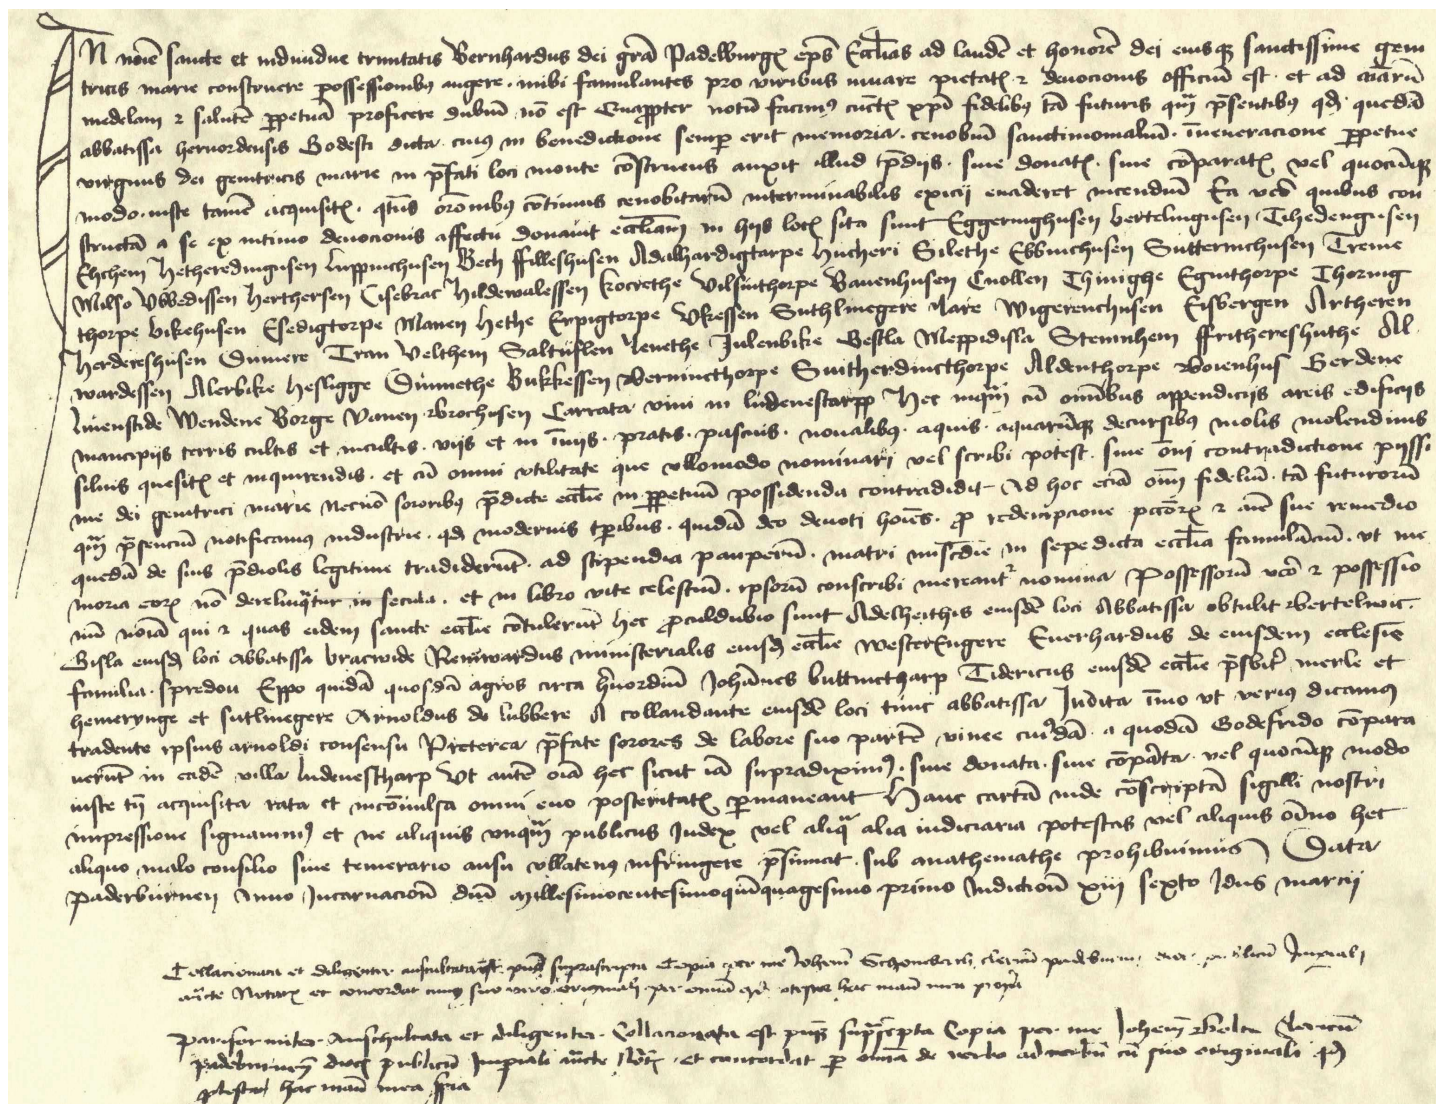 IN noie sancte et indiuidue trinitatis Bernhardus dei gra Padelburgn eps Ecclias ad laude et honore dei eiusq sanctissime geni
tricis marie construere possessionibus augere . inibi famulantes pro viribus iuuare pietatis et deuocionis officiu est . et ad aiaru
medelam et salute ppetua proficere dubiu no est Quappter notu facimus cunctis xpi fidelibus ta futuris qm psentibus qd queda
abbatissa heruordensis Godesti dicta . cuius in benedictione semp erit memoria . cenobiu sanctimonialiu . in veneracione ppetue
virginis dei genitricis marie in pfati loci monte construens auxit illud pdiis . siue donatis . siue coparatis vel quocuq
modo . iuste tame acquisitis . qtus oronibus cotinuis cenobitaru interminabilis exicii euaderet incendiu Ea vero quibus con
structa a se ex intimo deuocionis affectu donauit eccliam in hys locis sita sunt Eggeringhusen bertelingusen Tihedengusen
Ehchem Hetheredingusen Luppinchusen Bech ffilleshusen Adalhardigtarpe Hucheri Silethe Ebbinchusen Suttermchusen Treme
Milso Vbbedissen Herthersen Cisebrac Hildewalessen krocrethe Vilsinthorpe Bauenhusen Cnollen Thinighe Eginthorpe Thoring
thorpe bikehusen Esedigtorpe Manen Hethe Erpigtorpe Vkessen Suthlinegere Lare Wigerenchusen Eisbergen Artheren
Herdereshusen Diuuere Tran Velthem Saltuflen Lenethe Julenbike Bestla Meppidisla Stemnhem ffrithereshuthe Al
wardessen Alerbike Hesligge Dinnethe Bukkessen Bernincthorpe Suitherdincthorpe Aldenthorpe Bouenhus Gerdene
Liuenstide Wendene Borge Vanen Brochusen Carrata vini in ludenestarpp Hec inqm cu omibus appendiciis areis edificiis
mancipiis terris cultis et incultis . viis et in inuiis . pratis . pascuis . noualibus . aquis . aquaruq decursibus molis molendinis
siluis quesitis et inquirendis . et cu omni vtilitate que vllomodo nominari vel scribi potest . sine oni contradictione piissi
me dei genitrici marie necno sororibus pdicte ecclie in ppetuu possidenda contradidit Ad hoc ecia oim fideliu . ta futuroru
qm psenciu notificamus industrie . qd modernis tpibus . quida deo deuoti hoies . p redempcione pccoru et aie sue remedio
queda de suis pdiolis legitime tradiderut . ad stipendia pauperu . matri miscdie in sepedicta ecclia famulanciu . vt me
moria eoru no derelinqtur in secula . et in libro vite celestiu . ipsoru conscribi mereantr nomina Possessoru vero et possessio
nu noia qui et quas eidem sancte ecclie cotulerut hec pculdubio sunt Adelheithis eiusde loci Abbatissa obtulit Bertelwic .
Gisla eiusd loci abbatissa bracwide Reinwardus ministerialis eiusd ecclie westerengere Euerhardus de eiusdem ecclesie
familia . spredou Eppo quida quosda agros circa hvordiu Johannes buttincthorp Tidericus eiusde ecclie psbiter merle et
hemerynge et sutlinegere Arnoldus de lubbere A collandante eiusde loci tunc abbatissa Judita immo vt verius dicamus
tradente ipsius arnoldi consensu Preterea pfate sorores de labore suo parte vinee cuiusda . a quoda Godefrido compara
uerut in eade villa ludenesthorp Vt aute oia hec sicut ia supradiximus . siue donata . siue copata . vel quocuq modo
iuste tn acquisita rata et inconuulsa omni euo posteritatis pmaneant Hanc carta inde coscripta sigilli nostri
impressione signauimus et ne aliquis vnqm publicus Judex vel aliqa alia iudiciaria potestas vel aliquis oino hec
aliquo malo consilio siue temerario ausu vllatenus infringere psumat . sub anathemathe prohibuimus Data
Paderburnen Anno Incarnacionis dni Millesimocentesimoquinquagesimo primo Indictionu xiii sexto Idus marcii
Collacionata et diligenter auscultata est puis suprascripta Copia per me Johem clericu padeburn publicu Imperiali
aucte Notariu et concordat cum suo vero originali per omnia qd attestor hac manu mea ppria
Pariformiter Auschultata et diligenter Collacionata est pns suprascripta Copia per me Johem clericu
padeburnen dioc publicu Imperiali aucte Notar . et concordat p omia de verbo ad verbu cu suo originali qd
ptestor hac manu mea ppria